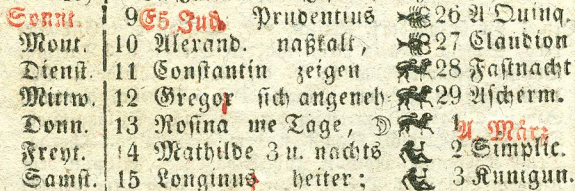 Sonnt. 9 E5 Jud. Prudentius 26 A Quinq.
Mont. 10 Alexand. naßkalt, 27 Claudion
Dienst. 11 Constantin zeigen 28 Fastnacht
Mittw. 12 Gregor sich angeneh- 29 Ascherm.
Donn. 13 Rosina me Tage, 1 A. März
Freyt. 14 Mathilde 3 u. nachts 2 Simplic.
Samst. 15 Longinus heiter; 3 Kunigun.